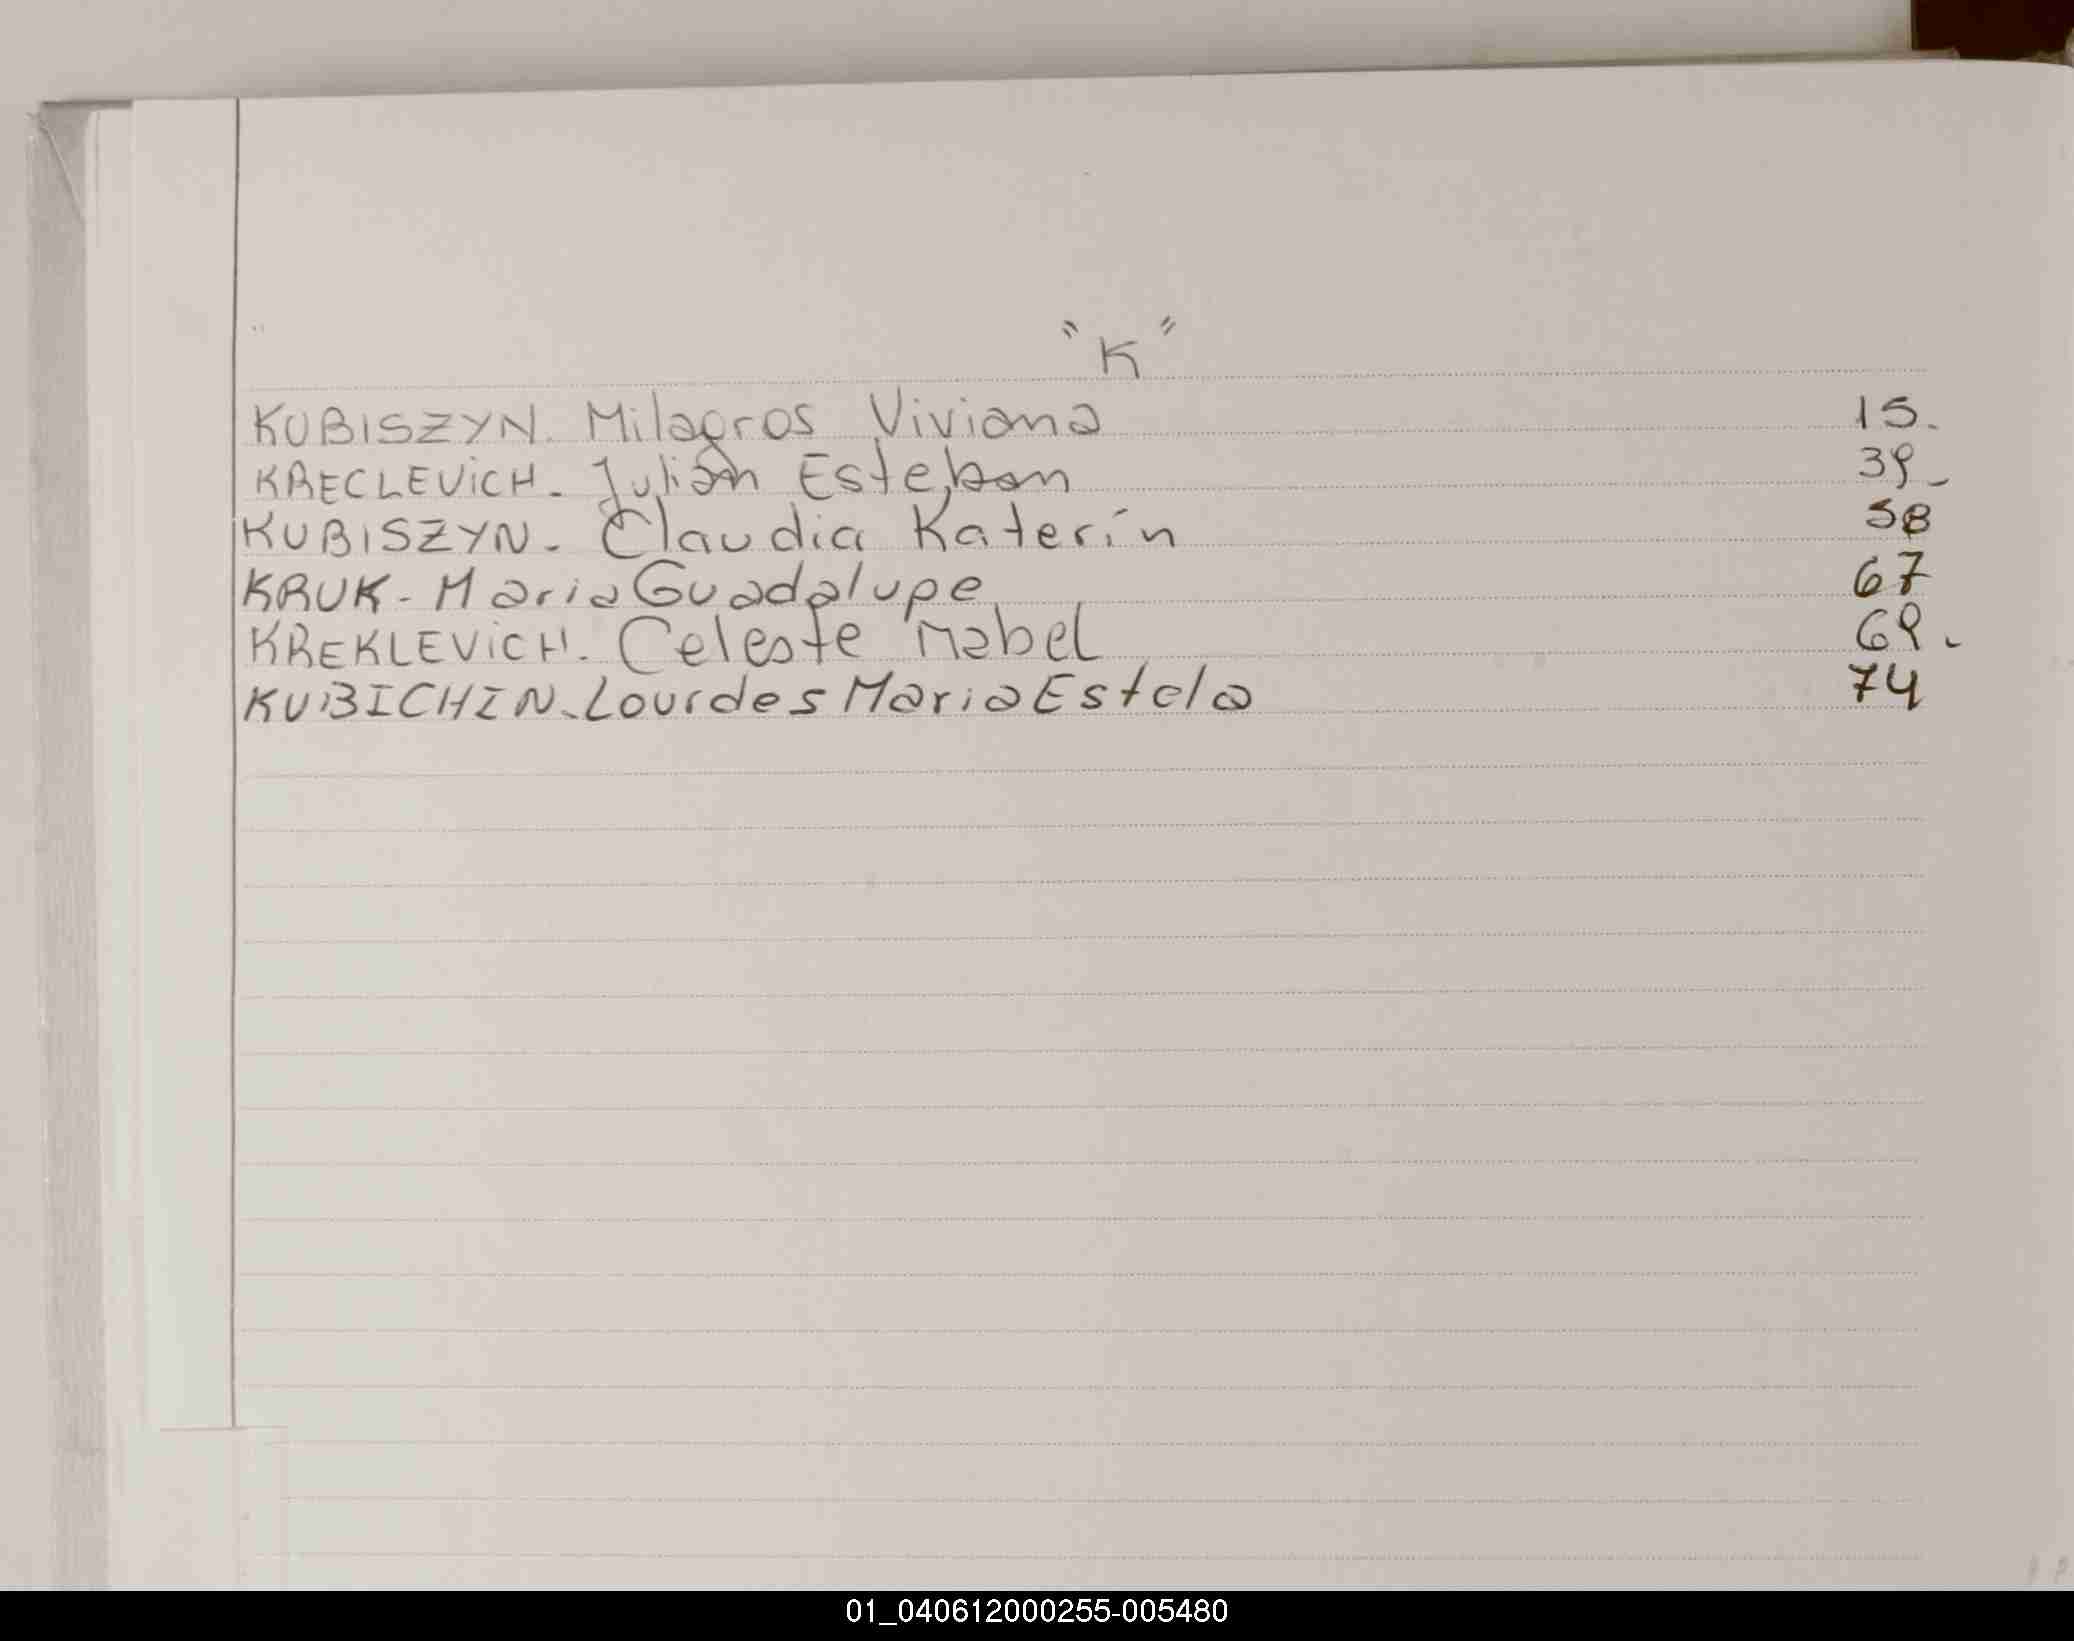 "K"
KUBISZYN. Milagros Viviana 15.
KRECLEVICH. Julián Esteban 39_
KUBISZYN. Claudia Katerín 58
KRUK - Maria Guadalupe 67
KREKLEVICH. Celeste Mabel 69.
KUBICHIN. Lourdes Maria Estela 74
01_040612000255-005480